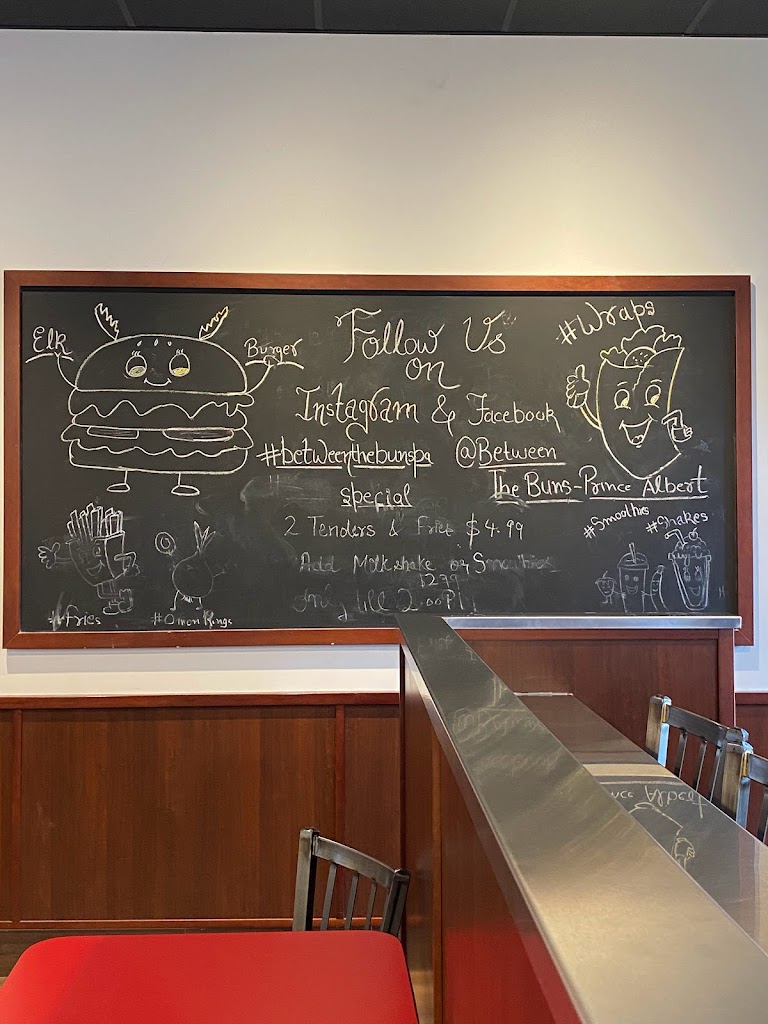 Elk
Burger
Follow Us
on
Instagram & Facebook
#betweenthebunspa @Between
The Buns-Prince Albert
special
2 Tenders & Fries $4.99
Add Milkshake or Smoothies
Only till 2.00P
#Wraps
#Smoothies
#Shakes
#Fries
#Onion Rings